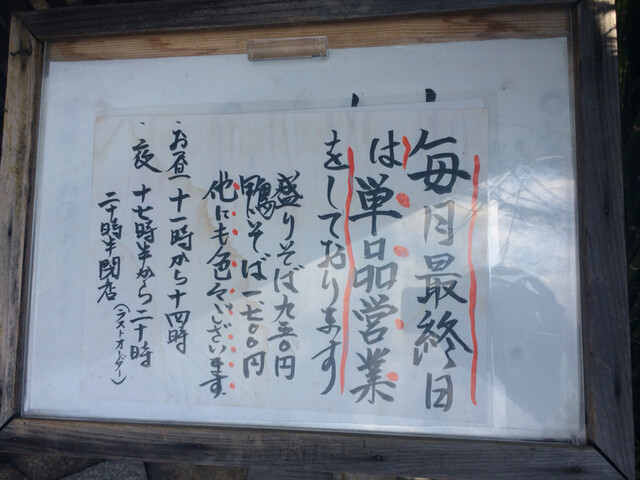 毎月最終日
は単品営業
をしております
盛りそば九五〇円
鴨そば一、七〇〇円
他にも色々ございます
・お昼 十一時から十四時
・夜 十七時半から二十時
(ラストオーダー)
二十時半閉店